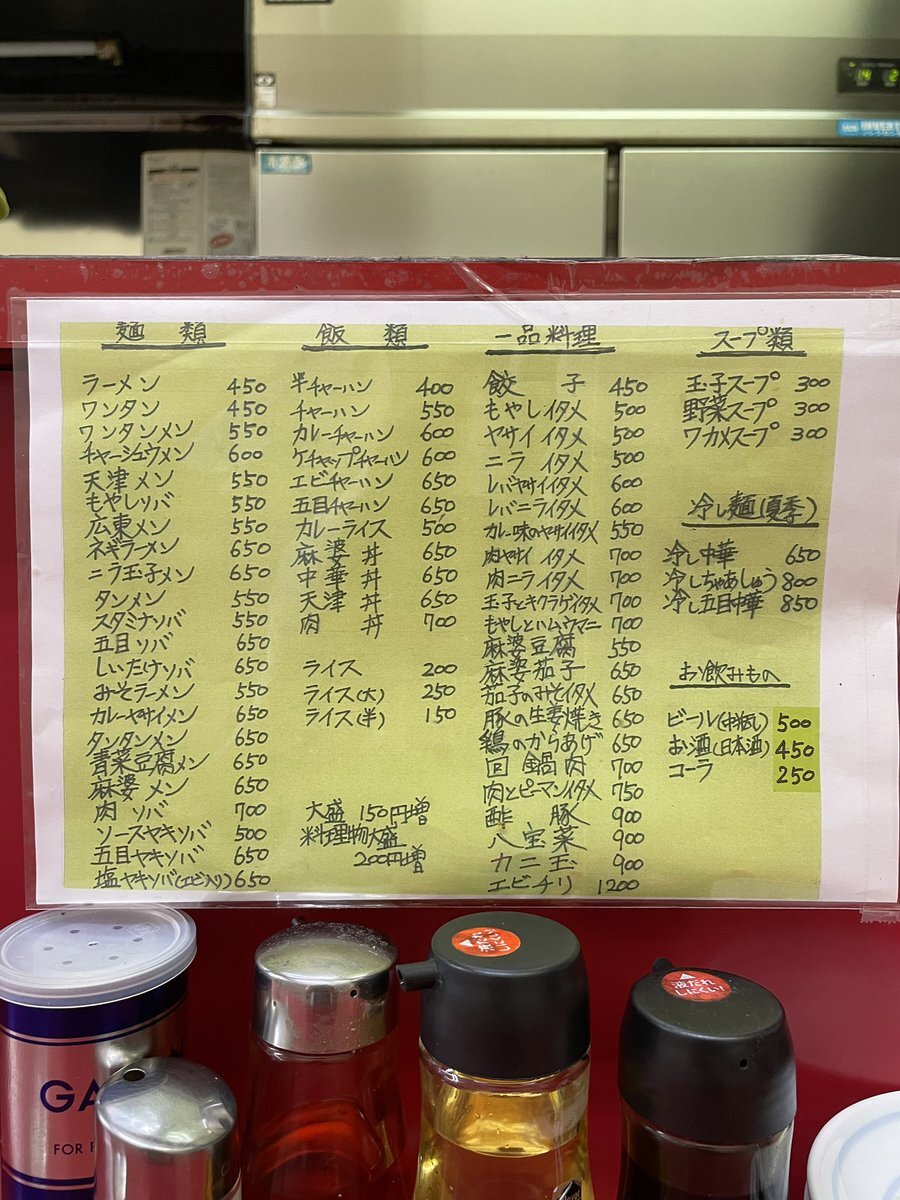 麺類
ラーメン 450
ワンタン 450
ワンタンメン 550
チャーシュウメン 600
天津メン 550
もやしソバ 550
広東メン 550
ネギラーメン 650
ニラ玉子メン 650
タンメン 550
スタミナソバ 550
五目ソバ 650
しいたけソバ 650
みそラーメン 550
カレーヤサイメン 650
タンタンメン 650
青菜豆腐メン 650
麻婆メン 650
肉ソバ 700
ソースヤキソバ 500
五目ヤキソバ 650
塩ヤキソバ(エビ入り) 650
飯類
半チャーハン 400
チャーハン 550
カレーチャーハン 600
ケチャップチャーハン 600
エビチャーハン 650
五目チャーハン 650
カレーライス 500
麻婆丼 650
中華丼 650
天津丼 650
肉丼 700
ライス 200
ライス(大) 250
ライス(半) 150
大盛 150円増
料理物大盛
200円増
一品料理
餃子 450
もやしイタメ 500
ヤサイイタメ 500
ニライタメ 500
レバヤサイイタメ 600
レバニライタメ 600
カレー味のヤサイイタメ 550
肉ヤサイイタメ 700
肉ニライタメ 700
玉子とキクラゲイタメ 700
もやしとハムウマニ 700
麻婆豆腐 550
麻婆茄子 650
茄子のみそイタメ 650
豚の生姜焼き 650
鶏のからあげ 650
回鍋肉 700
肉とピーマンイタメ 750
酢豚 900
八宝菜 900
カニ玉 900
エビチリ 1200
スープ類
玉子スープ 300
野菜スープ 300
ワカメスープ 300
冷し麺(夏季)
冷し中華 650
冷しちゃあしゅう 800
冷し五目中華 850
お飲みもの
ビール(中瓶) 500
お酒(日本酒) 450
コーラ 250
GA
FOR
液だれ
しにくい!